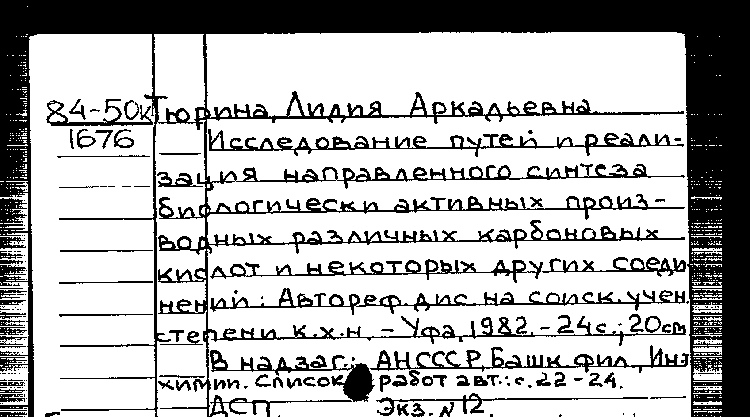 84-50к Тюрина, Лидия Аркадьевна.
1676 Исследование путей и реали-
зация направленного синтеза
биологически активных произ-
водных различных карбоновых
кислот и некоторых других соеди
нений: Автореф. дис на соиск. учен.
степени к.х.н. - Уфа, 1982. - 24 с.; 20 см
В надзаг.: АН СССР, Башк. фил., Ин-т
химии. Список работ авт.: с. 22-24.
ДСП. Экз. №12.